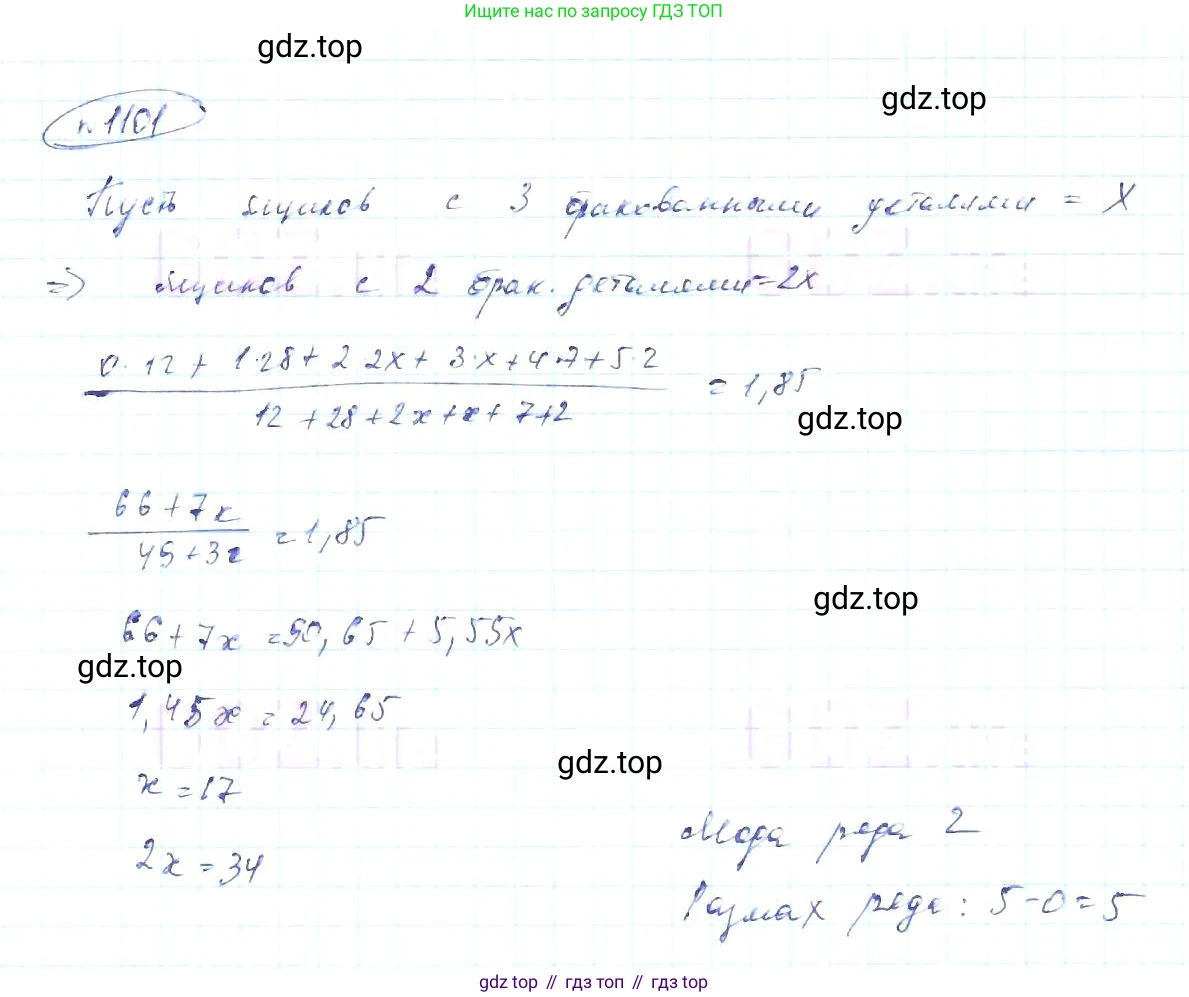 Ищите нас по запросу ГДЗ ТОП
gdz.top
gdz.top
n 1101
Пусть ящиков с 3 бракованными деталями = X
=> ящиков с 2 брак. деталями = 2x
0·12 + 1·28 + 2·2x + 3·x + 4·7 + 5·2
= 1,85
12 + 28 + 2x + x + 7 + 2
gdz.top
66 + 7x
= 1,85
49 + 3x
gdz.top
66 + 7x = 90,65 + 5,55x
gdz.top
1,45x = 24,65
gdz.top
x = 17
Мода ряда 2
2x = 34
Размах ряда: 5 - 0 = 5
gdz top // гдз топ // гдз top